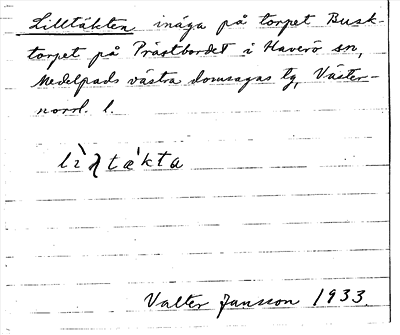 Lilltäkten inäga på torpet Busk-
torpet på Prästbordet i Haverö sn,
Medelpads västra domsagas tg, Väster-
norrl. l.
lìʅtæ̍kta
Valter Jansson 1933.